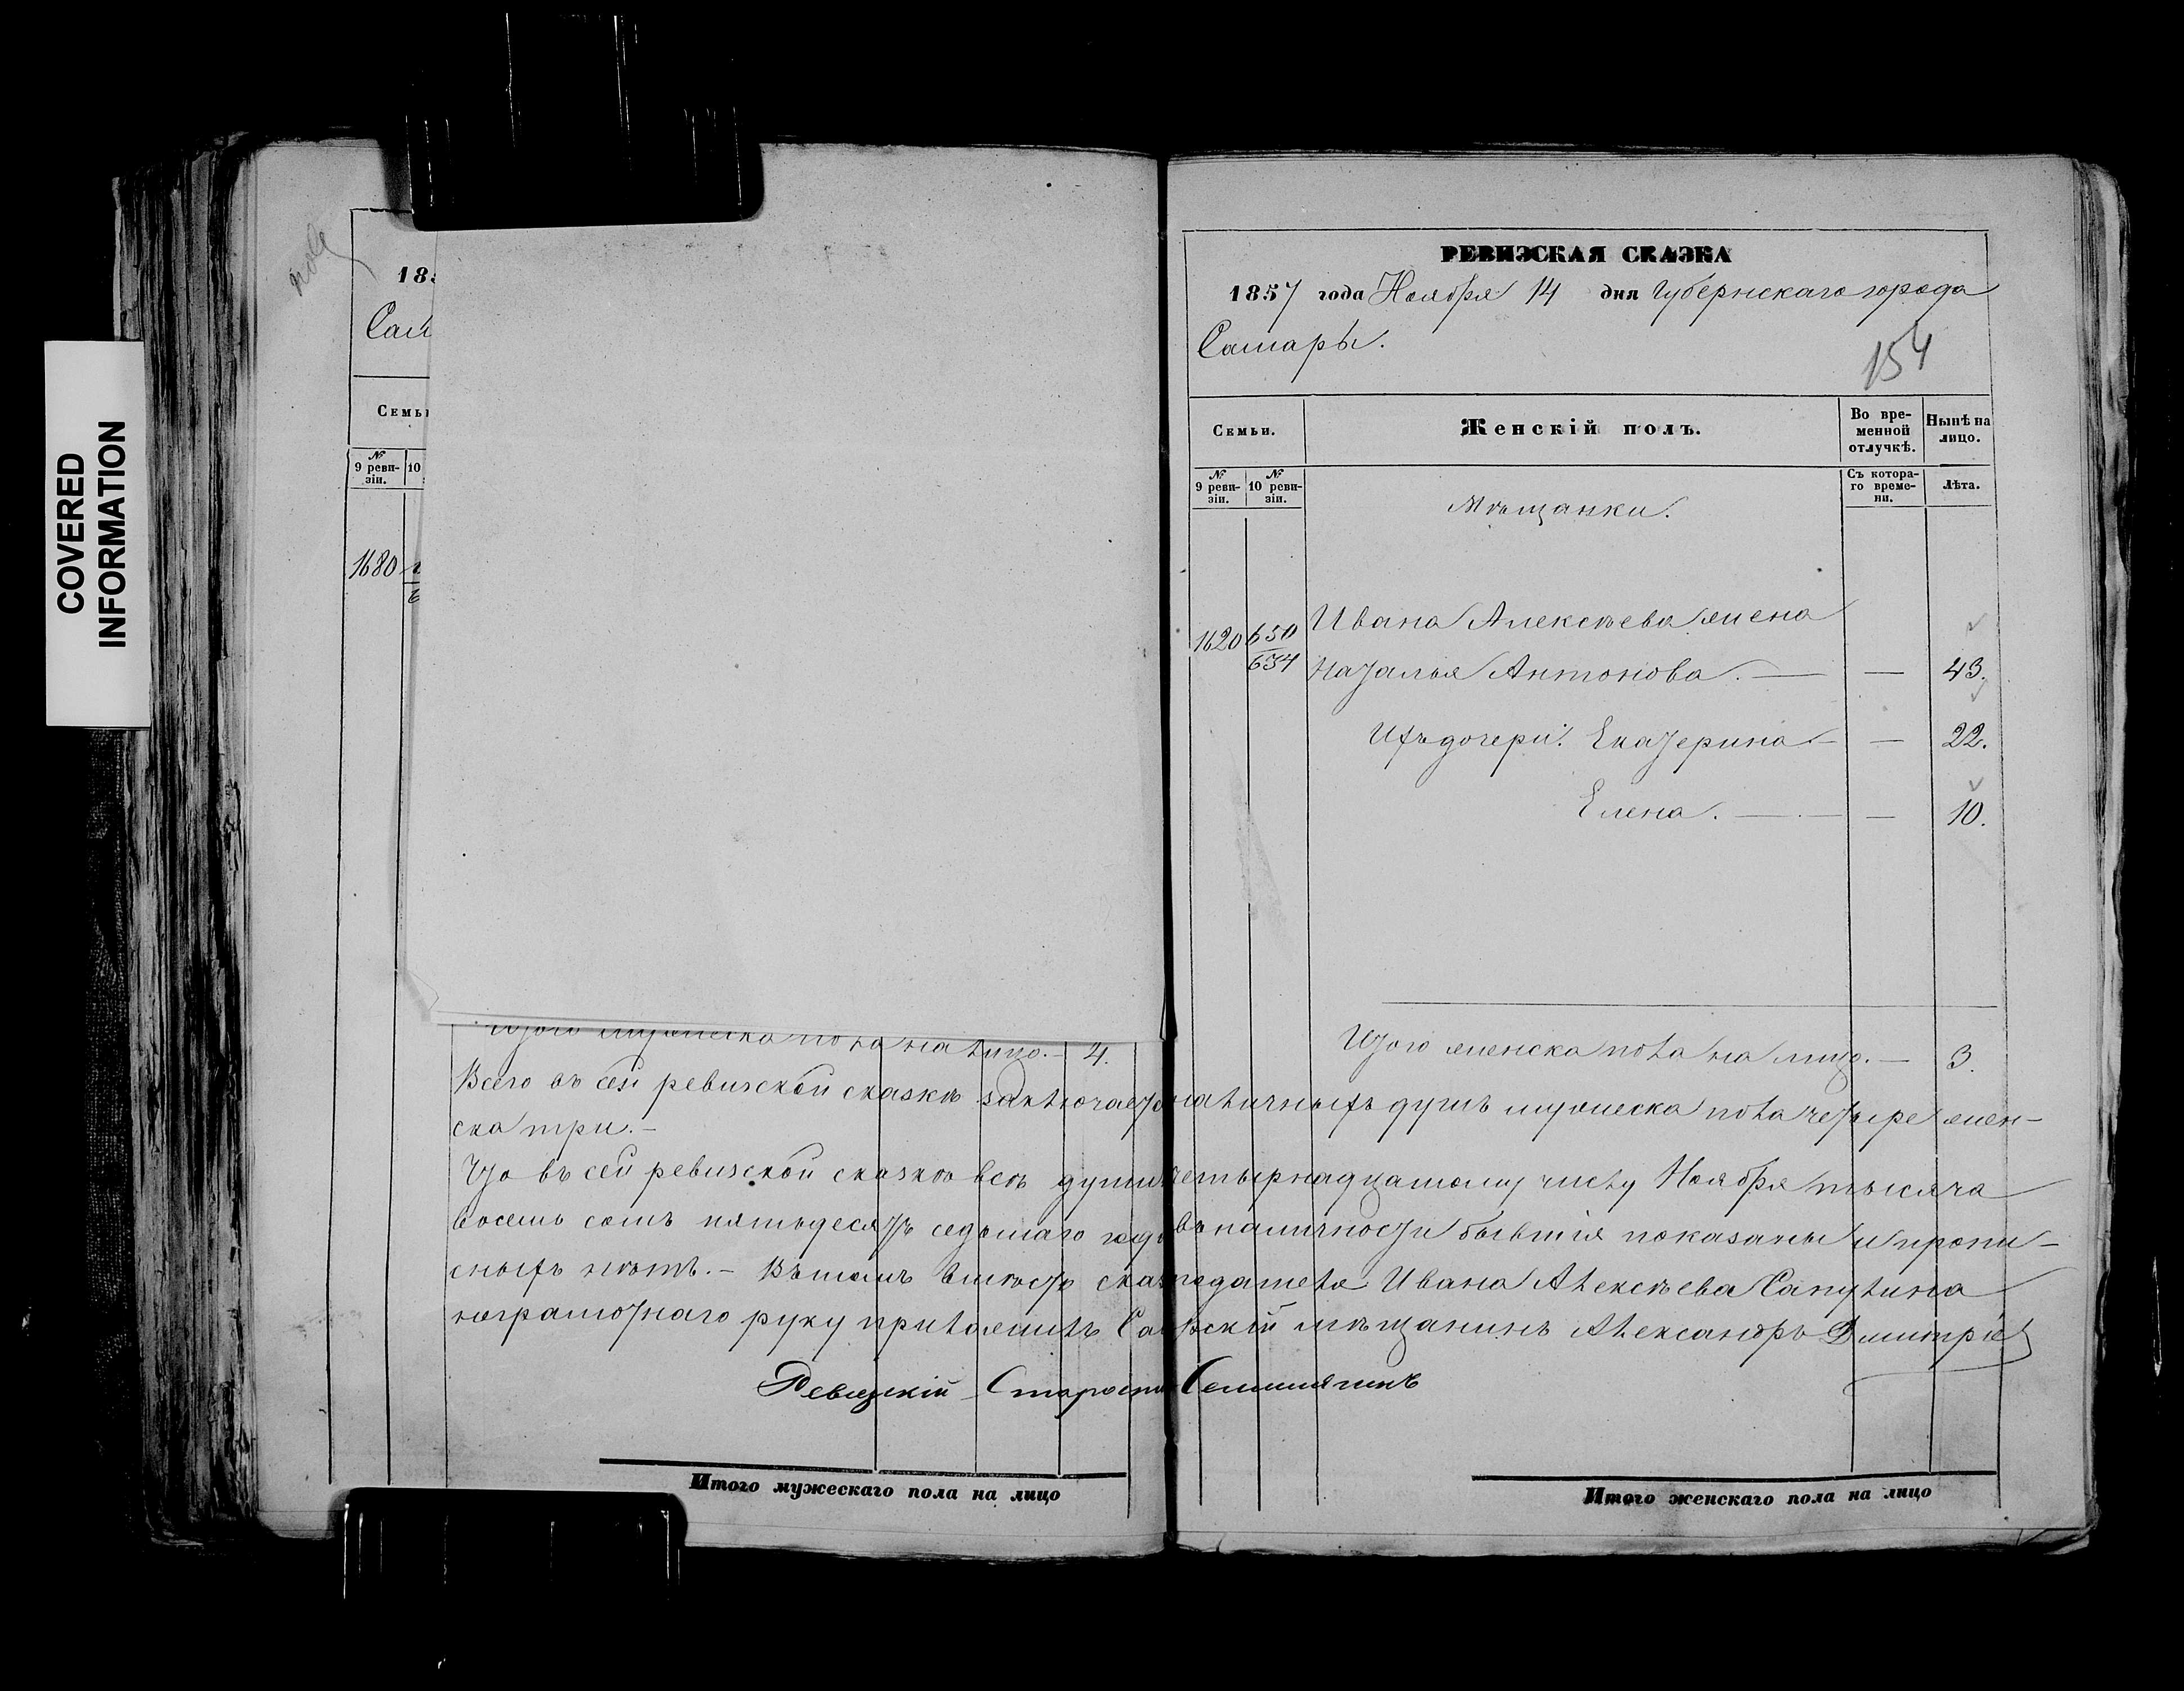 COVERED
INFORMATION
185
Сам
Семьи
№ 9 ревизіи. 10
1680
Итого мужеска пола на лицо. — 4.
РЕВИЗСКАЯ СКАЗКА
1857 года Ноября 14 дня Губернскаго города
Самары.
154
Семьи. Женскій полъ. Во временной отлучкѣ. Нынѣ на лицо.
№ 9 ревизіи. № 10 ревизіи. Съ котораго времени. Лѣта.
Мѣщанки.
1620 650/634 Ивана Алексѣева жена
Наталья Антонова. — — 43.
Ихъ дочери: Екатерина — — 22.
Елена. — — 10.
Итого женска пола на лицо. — 3.
Всего въ сей ревизской сказкѣ заключается наличныхъ душъ мужеска пола четыре жен-
ска три. —
Что въ сей ревизской сказкѣ всѣ души четырнадцатому числу Ноября тысяча
восемь сотъ пятьдесятъ седьмаго года въ наличности бывшія показаны и пропи-
сныхъ нѣтъ. — Въ томъ вмѣсто сказкоподателя Ивана Алексѣева Сапулина
неграмотнаго руку приложилъ Самарскій мѣщанинъ Александръ Дмитріе
Ревизскій Староста
Итого мужескаго пола на лицо
Итого женскаго пола на лицо